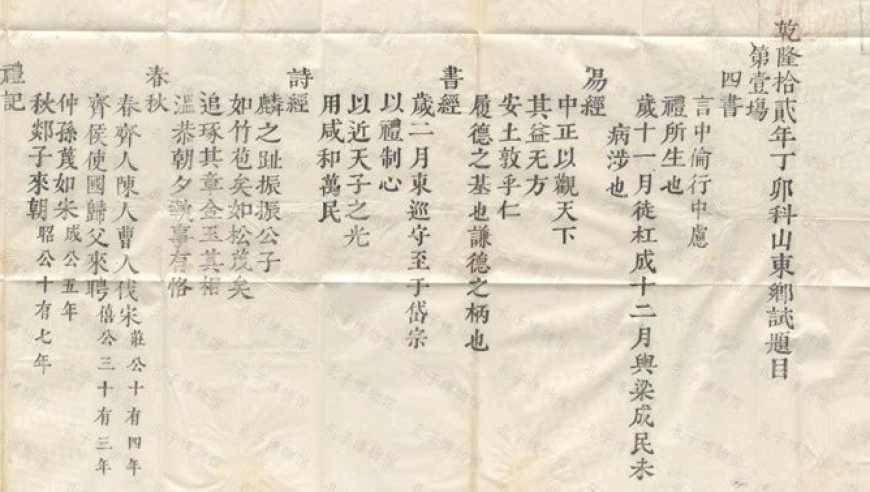 乾隆拾貳年丁卯科山東鄉試題目
第壹場
四書
言中倫行中慮
禮所生也
歲十一月徒杠成十二月輿梁成民未
病涉也
易經
中正以觀天下
其益无方
安土敦乎仁
履德之基也謙德之柄也
書經
歲二月東巡守至于岱宗
以禮制心
以近天子之光
用咸和萬民
詩經
麟之趾振振公子
如竹苞矣如松茂矣
追琢其章金玉其相
溫恭朝夕執事有恪
春秋
春齊人陳人曹人伐宋莊公十有四年
齊侯使國歸父來聘僖公三十有三年
仲孫蔑如宋成公五年
秋郯子來朝昭公十有七年
禮記